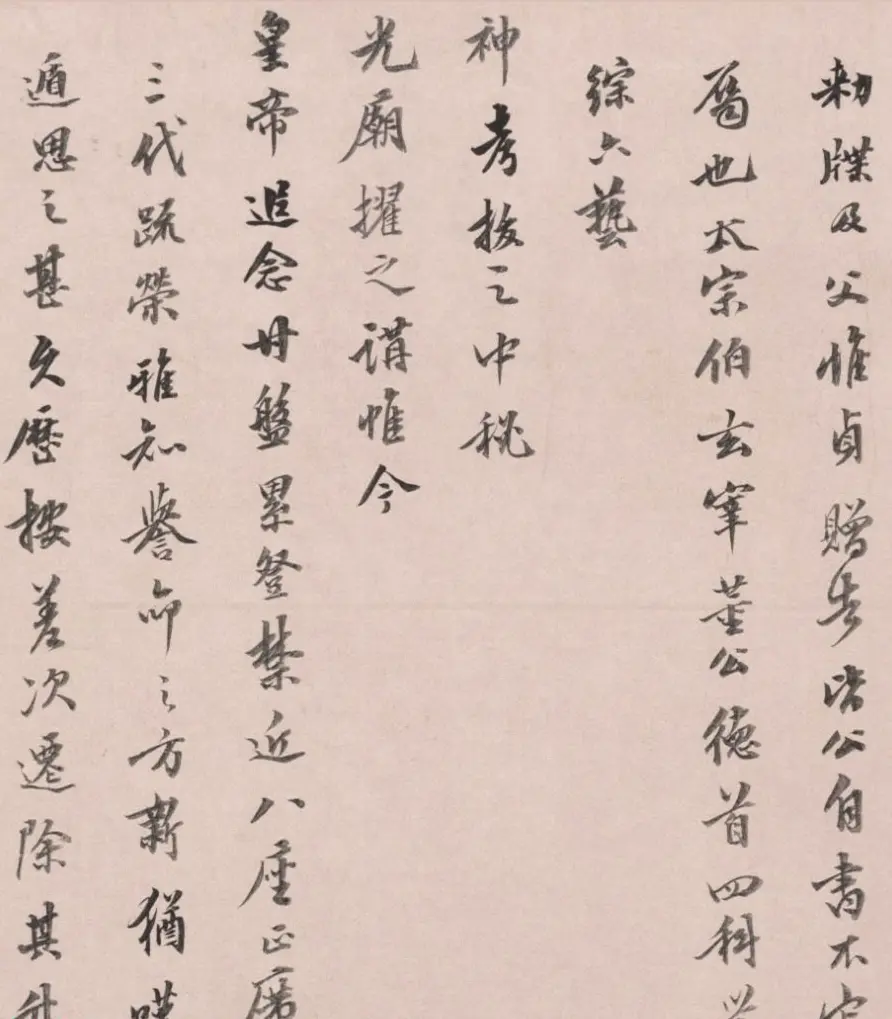 勅牒及父惟貞贈告皆公自書不
屬也太宗伯玄宰董公德首四科
綜六藝
神考拔之中秘
光廟擢之講惟今
皇帝追念甘盤累登禁近八座正席
三代疏榮雅知譽命之方新猶嘆
遁思之甚久歷按差次遷除其升